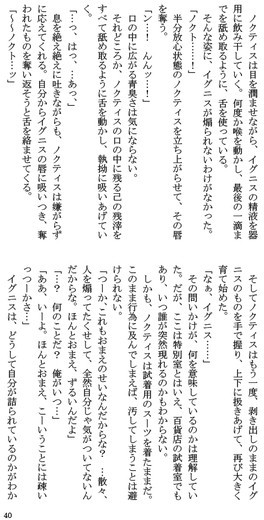 ノクティスは目を潤ませながら、イグニスの精液を器
用に飲み干していく。何度か喉を動かし、最後の一滴ま
でを舐め取るように、舌を使っている。
そんな姿に、イグニスが煽られないわけがなかった。
「ノクト……！」
半分放心状態のノクティスを立ち上がらせて、その唇
を奪う。
「ン……！　んんッ……！」
口の中に広がる青臭さは気にならない。
それどころか、ノクティスの口の中に残る己の残滓を
すべて舐め取るように舌を動かし、執拗に吸いあげてい
く。
「……っは、っ……あっ」
息を絶え絶えに吐きながらも、ノクティスは嫌がらず
に応えてくれる。自分からイグニスの唇に吸いつき、奪
われたものを奪い返そうと舌を絡ませてくる。
「～～ノクトーッ」
そしてノクティスはもう一度、剥き出しのままのイグ
ニスのものを手で握り、上下に扱きあげて、再び大きく
育て始めた。
「なぁ、イグニス……」
その問いかけが、何を意味しているのかは理解してい
た。だが、ここは特別室とはいえ、百貨店の試着室でも
あり、いつ誰が突然現れるのかもわからない。
しかも、ノクティスは試着用のスーツを着たままだ。
このまま行為に及んでしまえば、汚してしまうことは避
けられない。
「つーか、これもおまえのせいなんだからな？　…散々、
人を煽ってたくせして、全然自分じゃ気がついてないん
だからな。ほんとおまえ、ずるいんだよ」
「…？　何のことだ？　俺がいつ…」
「ああ、いーよ。ほんとおまえ、こーいうことには疎い
つーかさ…」
イグニスは、どうして自分が詰られているのかがわか
40